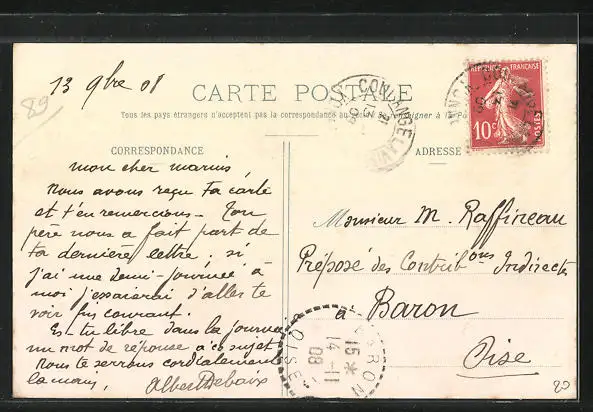 13 9bre 08
89
CARTE POSTALE
Tous les pays étrangers n'acceptent pas la correspondance au
CORRESPONDANCE
ADRESSE
RÉPUBLIQUE FRANÇAISE
10c
POSTES
mon cher marius,
Nous avons reçu ta carte
et t'en remercions - Ton
père nous a fait part de
ta dernière lettre; si
j'ai une demi-journée à
moi j'essaierai d'aller te
voir fin courant.
Es-tu libre dans la journée
un mot de réponse à ce sujet
Nous te serrons cordialement
la main,
Albert Debaix
Monsieur M. Raffineau
Préposé des Contribons Indirectes
à Baron
Oise
BARON
15* 14-11 08
OISE
20